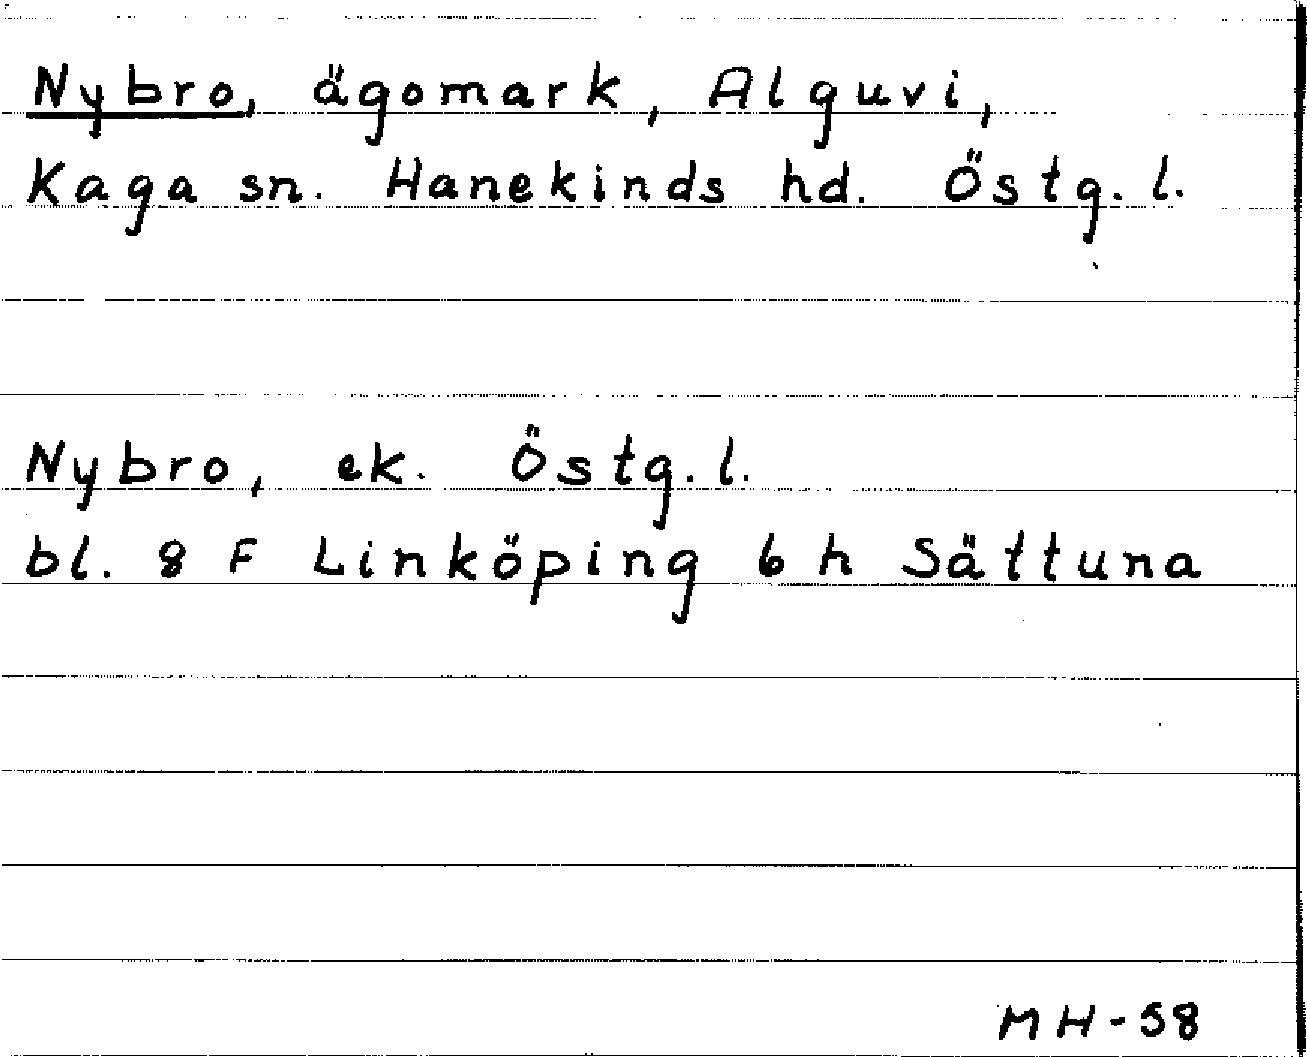 Nybro, ägomark, Alguvi,
Kaga sn. Hanekinds hd. Östg. l.
Nybro, ek. Östg. l.
bl. 8 F Linköping 6 h Sättuna
MH-58